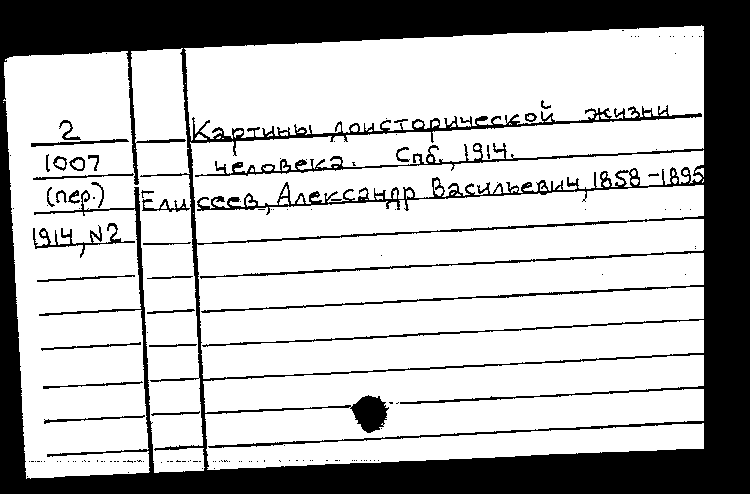 2 Картины доисторической жизни
1007 человека. Спб., 1914.
(пер.) Елисеев, Александр Васильевич, 1858-1895
1914, N2